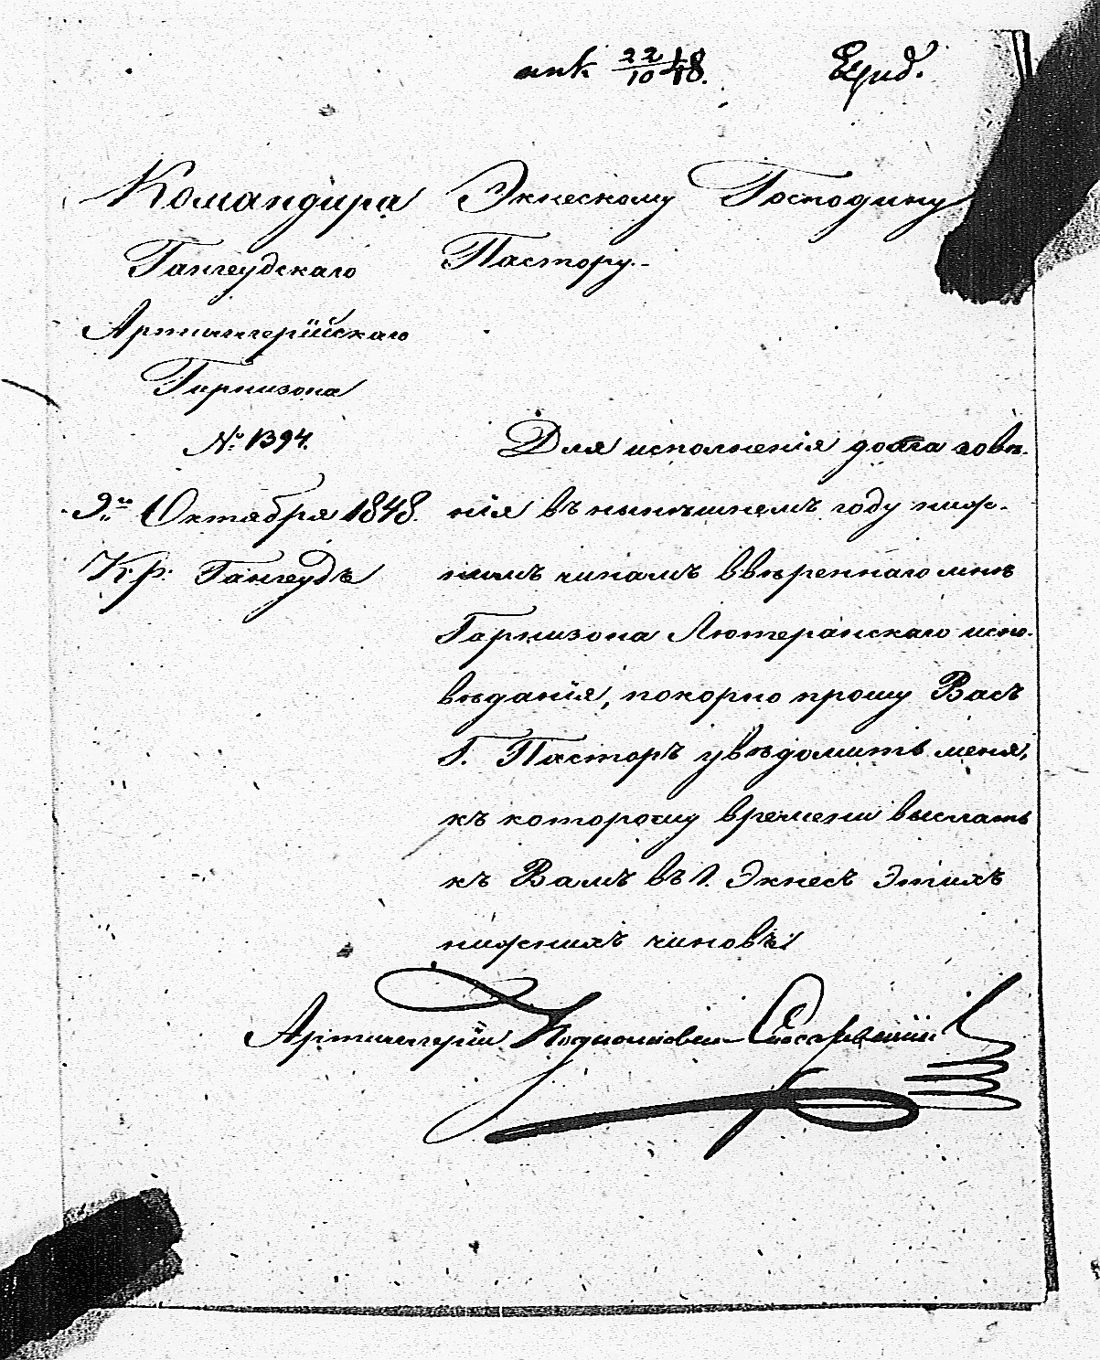 ank 22/10 48.
Командира
Гангеудскаго
Артиллерійскаго
Гарнизона
№ 1394.
9го Октября 1848.
Кр. Гангеудъ
Экнескому Господину
Пастору.
Для исполненія долга говѣ-
нія въ нынѣшнемъ году ниж-
нимъ чинамъ ввѣреннаго мнѣ
Гарнизона Лютеранскаго испо-
вѣданія, покорно прошу Васъ
Г. Пасторъ увѣдомить меня,
къ которому времени выслать
къ Вамъ въ г. Экнесъ этихъ
нижнихъ чиновъ.
Артиллеріи